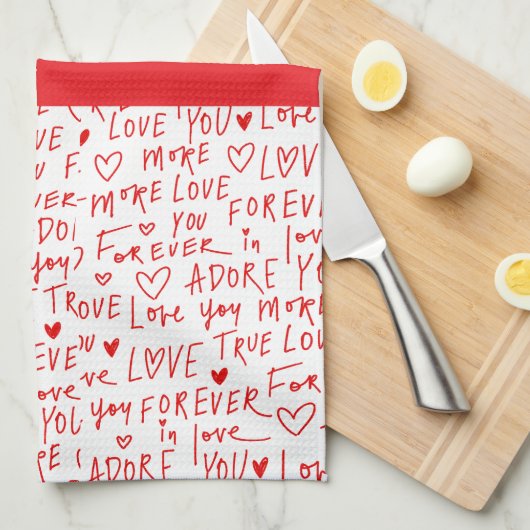 VE LOVE YOU Love
U F. MORE LOVE
EVER- MORE LOVE FOREVER
ADOR YOU
you FOREVER in love
TROVE ADORE YO
Love you MORE
EVE OU LOVE TRUE LOV
love ve
YOU you FOREVER Fore
in love
ADORE YOU Love